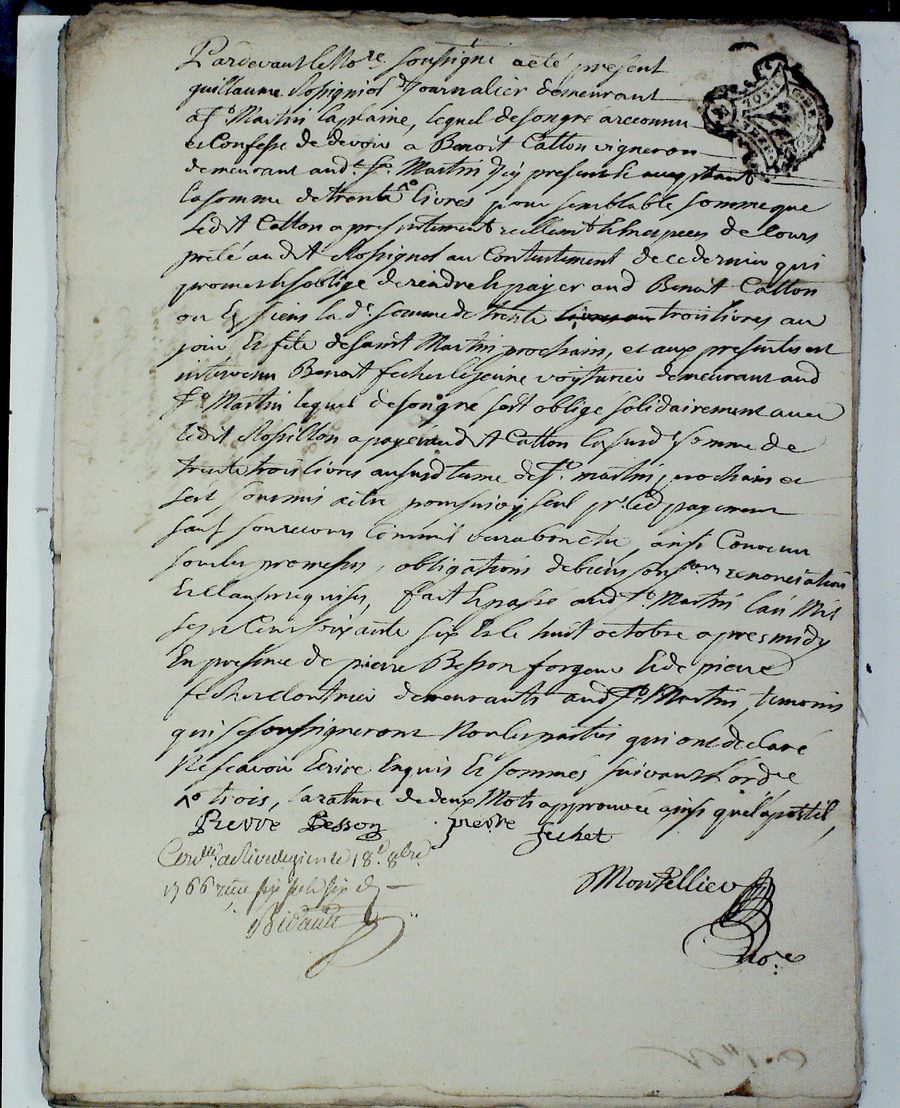 Pardevant le No.re soussigné a eté present
guillaume Rossignol Journalier demeurant
a St. Martin laplaine, lequel de son gré a reconnu
et Confessé de devoir a Benoit Catton vigneron
demeurant aud.t St. Martin Jcy present et acceptant
la somme de trente ^o livres pour semblable somme que
ledit Catton a presentement reellem.t et en especes de Cours
preté audit Rossignol au Contentement de ce dernier qui
promet et s'oblige de rendre et payer aud. Benoit Catton
ou Es siens la d.e somme de trente trois livres au
jour Et fete de saint Martin prochain, et aux presentes est
intervenu Benoit fechet le jeune voiturier demeurant aud
St. Martin lequel de son gré s'est obligé solidairement avec
ledit Rossillon a payer audit Catton la susd. somme de
trente trois livres au susd. terme de St. martin prochain et
s'est soumis a etre poursuivy seul pr. led. payement
sauf son recours Comme verra bon etre, ainsi Convenu
sous les promesses, obligations de biens renonciation
Et Clauses requises, fait et passé aud. St. Martin l'an Mil
sept Cent soixante six Et le huit octobre apres midy
En presence de pierre Besson forgeur Et de pierre
fechet demeurants aud. St. Martin, temoins
qui se soussigneront Non les parties qui ont declaré
Ne scavoir Ecrire Enquis Et sommés suivant l'ordce
^o trois, la rature de deux Mots approuvée ainsi que l'apostil,
Pierre Besson pierre fechet
Con.lle a Rivedegier le 18.e 8bre
1766 reçu six sols six d
Bidault
Montellier
no.re